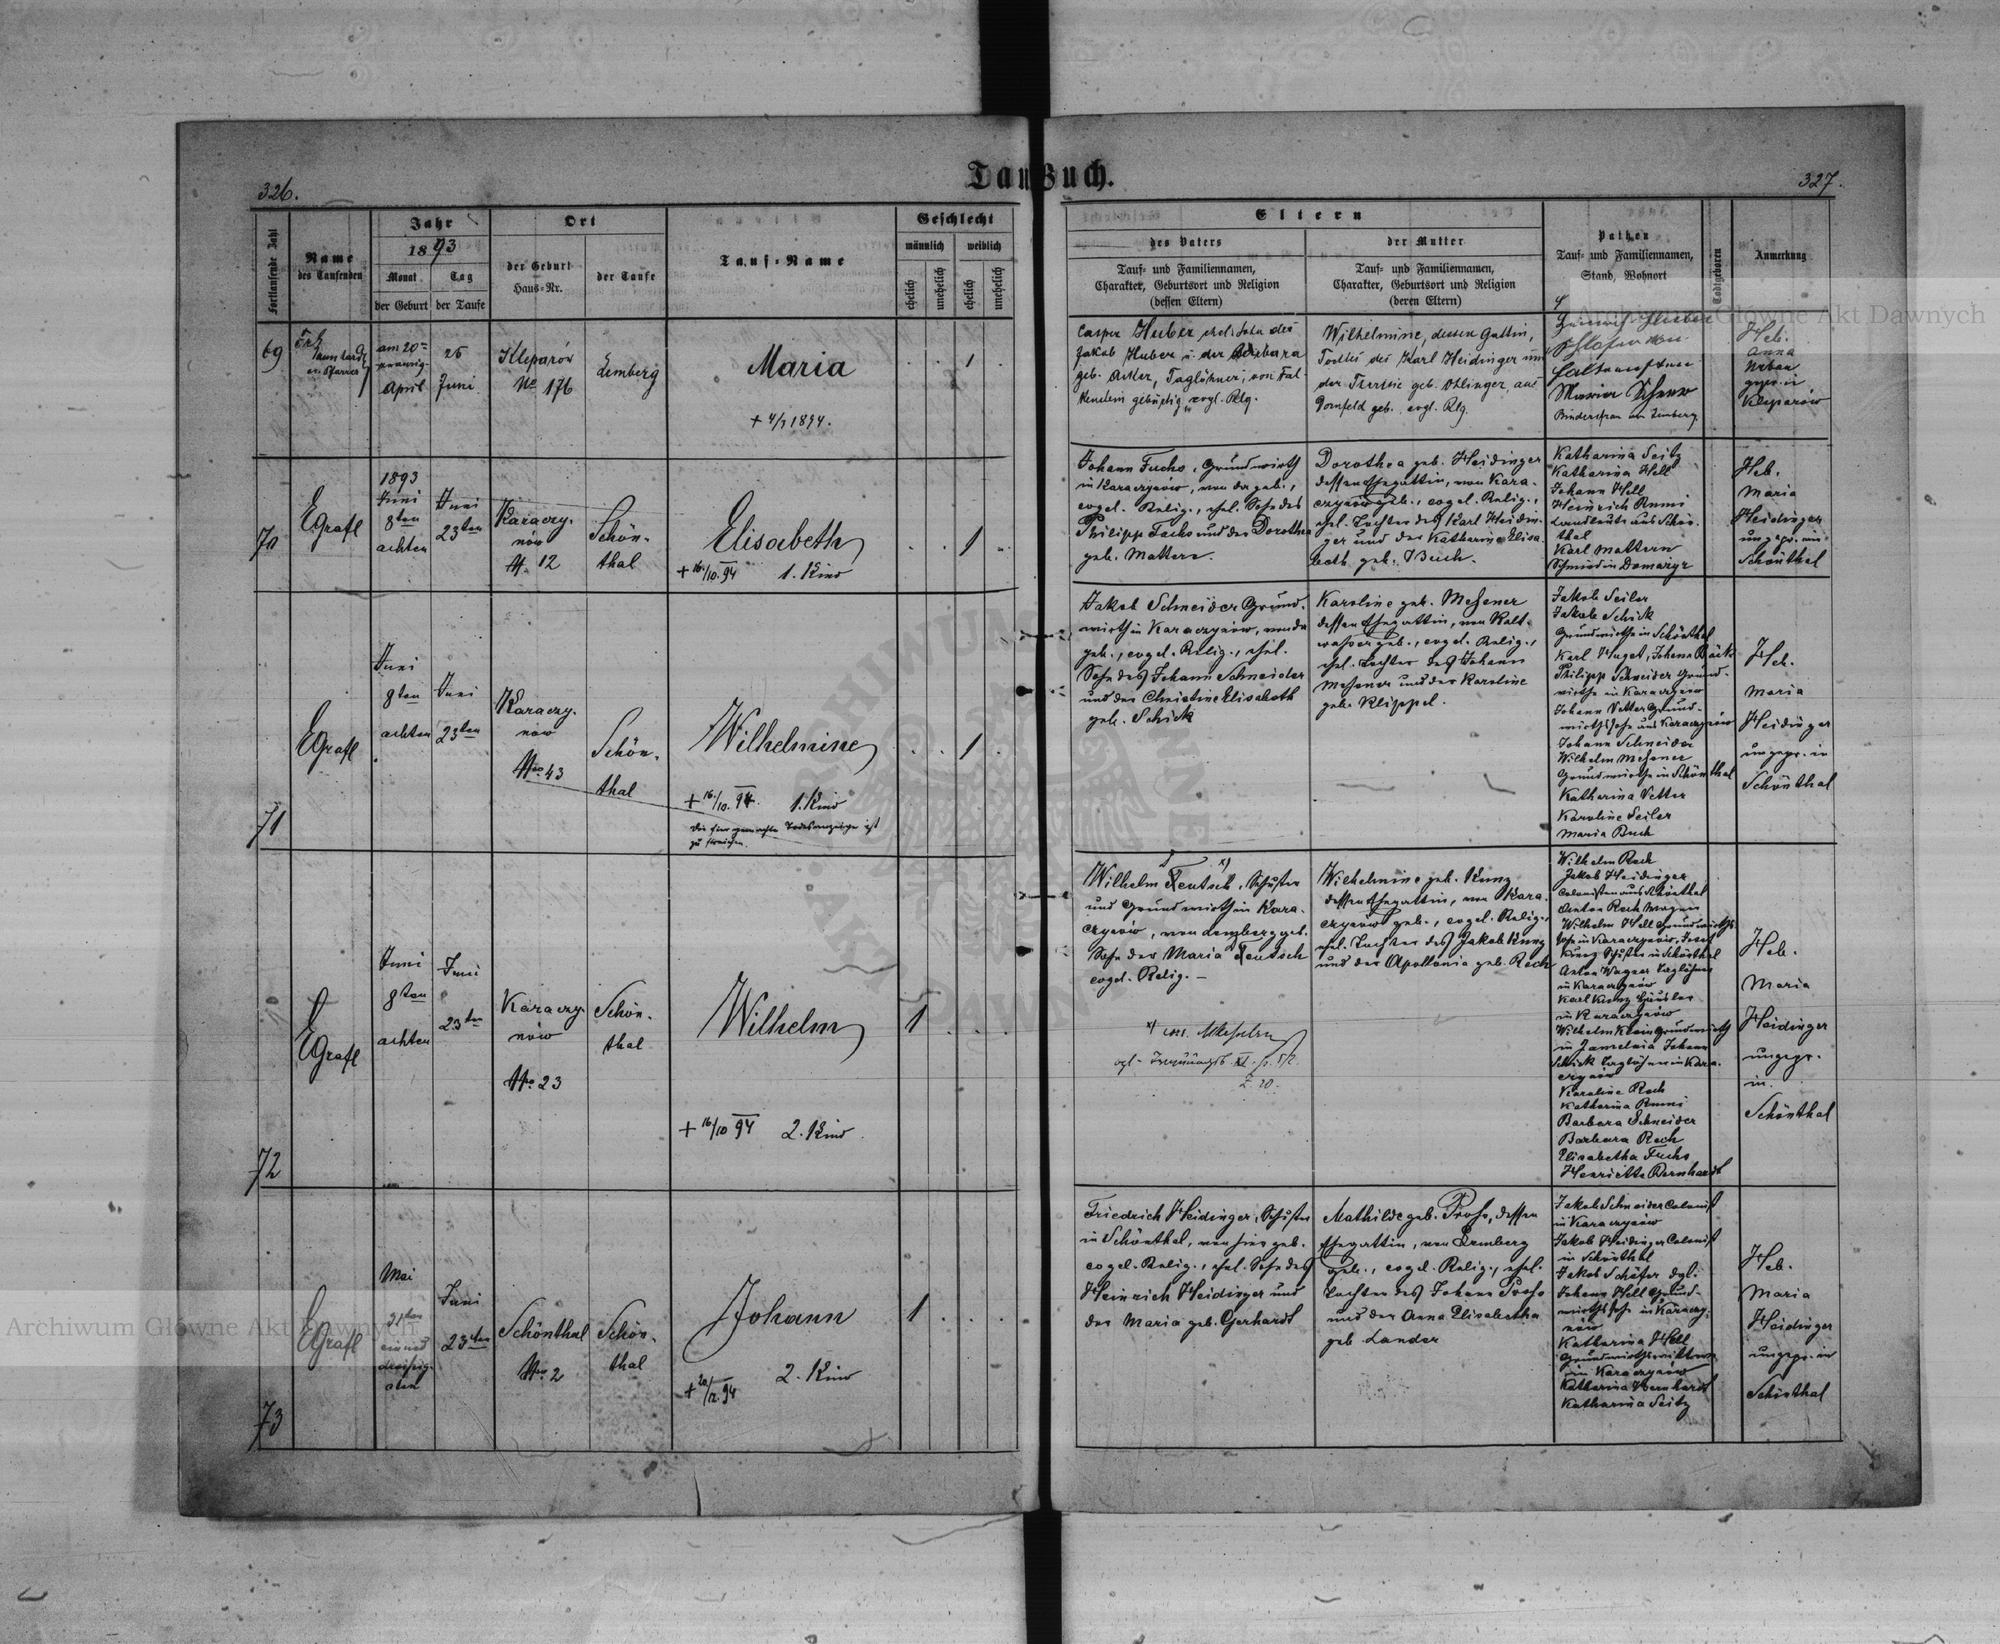 326.
Taufbuch.
327.
Fortlaufende Zahl
Name
des Taufenden
Jahr
1893
Monat
Tag
der Geburt
der Taufe
Ort
der Geburt
Haus-Nr.
der Taufe
Tauf-Name
Geschlecht
männlich
weiblich
ehelich
unehelich
ehelich
unehelich
Eltern
des Vaters
Tauf- und Familiennamen,
Charakter, Geburtsort und Religion
(dessen Eltern)
der Mutter
Tauf- und Familiennamen,
Charakter, Geburtsort und Religion
(deren Eltern)
Pathen
Tauf- und Familiennamen,
Stand, Wohnort
Todtgeboren
Anmerkung
69
am 20
April
25
Juni
Kleparów
No 176
Lemberg
Maria
+ 4/7 1894.
1
Casper Huber ehel. Sohn des
Jakob Huber u. der Barbara
geb. Acker, Taglöhner, von Fal-
kenstein gebürtig, evgl. Rlg.
Wilhelmine, dessen Gattin,
Tochter des Karl Heidinger und
der Therese geb. Ohlinger, aus
Dornfeld geb. evgl. Rlg.
Heinrich Huber
Falkenstein
Maria Scherer
Bindersfrau in Lemberg
Heb.
Anna
Urban
gepr. in
Kleparów
70
EGrafl
1893
Juni
8ten
achten
Juni
23ten
Karaczy-
nów
N. 12
Schön-
thal
Elisabeth
+ 16./10. 94 1. Kind
1
Johann Fuchs, Grundwirth
in Karaczynów, von da geb.,
evgel. Relig., ehel. Sohn des
Philipp Fuchs und der Dorothea
geb. Mattern.
Dorothea geb. Heidinger
dessen Ehegattin, von Kara-
czynów geb., evgel. Relig.,
ehel. Tochter des Karl Heidin-
ger und der Katharina Elisa-
beth geb. Buch.
Katharina Seitz
Katharina Hell
Johann Hell
Heinrich Rumi
Landleute aus Schön-
thal
Karl Mattern
Schmied in Domazyr
Heb.
Maria
Heidinger
ungepr. in
Schönthal
71
EGrafl
Juni
8ten
achten
Juni
23ten
Karaczy-
nów
No. 43
Schön-
thal
Wilhelmine
+ 16./10. 94. 1. Kind
Die hier gemachte Todesanzeige ist
zu streichen.
1
Jakob Schneider Grund-
wirth in Karaczynów, von da
geb., evgel. Relig., ehel.
Sohn des Johann Schneider
und der Christine Elisabeth
geb. Schick
Karoline geb. Messner
dessen Ehegattin, von Kalt-
wasser geb., evgel. Relig.,
ehel. Tochter des Johann
Messner und der Karoline
geb. Klippel.
Jakob Seiler
Jakob Schick
Grundwirthe in Schönthal
Karl Huget, Johann Bäck
Philipp Schneider Grund-
wirthe in Karaczynów
Johann Vetter Grund-
wirthssohn aus Karaczynów
Johann Schneider
Wilhelm Messner
Grundwirthe in Schönthal
Katharina Vetter
Karoline Seiler
Maria Buch
Heb.
Maria
Heidinger
ungepr. in
Schönthal
72
EGrafl
Juni
8ten
achten
Juni
23ten
Karaczy-
nów
No. 23
Schön-
thal
Wilhelm
+ 16/10 94 2. Kind
1
Wilhelm Teutsch x), Schuster
und Grundwirth in Kara-
czynów, von Lemberg geb.
Sohn der Maria Teutsch
evgel. Relig. –
Wilhelmine geb. Kunz
dessen Ehegattin, von Kara-
czynów geb., evgel. Relig.,
ehel. Tochter des Jakob Kunz
und der Apollonia geb. Rech
Wilhelm Rech
Jakob Heidinger
Colonisten aus Schönthal
Anton Rech
Wilhelm Hell Grundwirths
sohn in Karaczynów, Josef
Kunz Schuster in Schönthal
Anton Wagner Taglöhner
in Karaczynów
Karl Kunz Häusler
in Karaczynów
Wilhelm Klein Grundwirth
in Zamelnia Johann
Schick Taglöhner in Kara-
czynów
Karoline Rech
Katharina Rumi
Barbara Schneider
Barbara Rech
Elisabetha Fuchs
Henriette Bernhardt
Heb.
Maria
Heidinger
ungepr.
in
Schönthal
73
EGrafl
Mai
31ten
einund
dreißig-
sten
Juni
23ten
Schönthal
No. 2
Schön-
thal
Johann
2. Kind
1
Friedrich Heidinger, Schuster
in Schönthal, von hier geb.
evgel. Relig., ehel. Sohn des
Heinrich Heidinger und
der Maria geb. Gerhardt
Mathilde geb. Proß, dessen
Ehegattin, von Lemberg
geb., evgel. Relig., ehel.
Tochter des Johann Proß
und der Anna Elisabetha
geb. Lander
Jakob Schneider Colonist
in Karaczynów
Jakob Heidinger Colonist
in Schönthal
Jakob Schäfer dgl.
Johann Hell Grund-
wirthssohn in Karaczy-
nów
Katharina Hell
Grundwirthswittwe
in Karaczynów
Katharina Bernhardt
Katharina Seitz
Heb.
Maria
Heidinger
ungepr. in
Schönthal
Archiwum Główne Akt Dawnych
Archiwum Główne Akt Dawnych